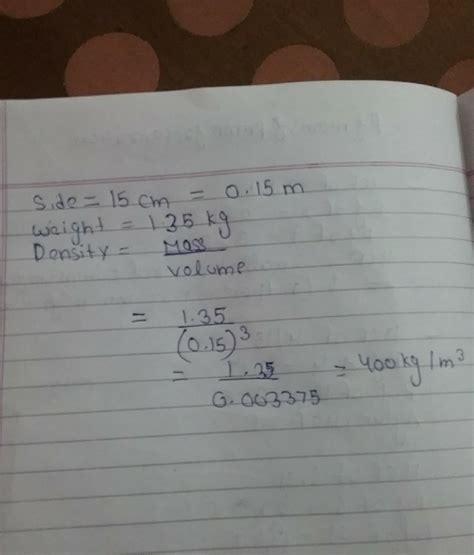 Side = 15 cm = 0.15 m
weight = 1.35 kg
Density = Mass
volume
= 1.35
(0.15)3
= 1.35 = 400 kg/m3
0.003375